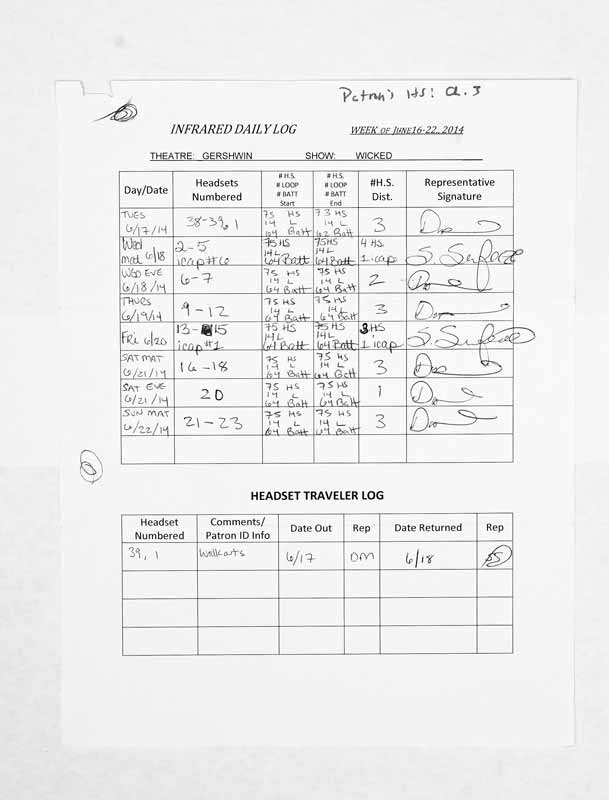 Patron's HS: Ch. 3
INFRARED DAILY LOG WEEK OF JUNE16-22, 2014
THEATRE: GERSHWIN SHOW: WICKED
Day/Date Headsets Numbered # H.S. # LOOP # BATT Start # H.S. # LOOP # BATT End #H.S. Dist. Representative Signature
TUES 6/17/14 38-39, 1 75 HS 14 L 64 Batt 73 HS 14 L 62 Batt 3
Wed mat 6/18 2-5 icap#6 75HS 14L 64Batt 75HS 14L 64Batt 4 HS 1 icap
WED EVE 6/18/14 6-7 75 HS 14 L 64 Batt 75 HS 14 L 64 Batt 2
THURS 6/19/14 9-12 75 HS 14 L 64 Batt 75 HS 14 L 64 Batt 3
Fri 6/20 13-15 icap#1 75HS 14L 64 Batt 75HS 14L 64 Batt 3HS 1 icap
SAT MAT 6/21/14 16-18 75 HS 14 L 64 Batt 75 HS 14 L 64 Batt 3
SAT EVE 6/21/14 20 75 HS 14 L 64 Batt 75 HS 14 L 64 Batt 1
SUN MAT 6/22/14 21-23 75 HS 14 L 64 Batt 75 HS 14 L 64 Batt 3
HEADSET TRAVELER LOG
Headset Numbered Comments/ Patron ID Info Date Out Rep Date Returned Rep
39, 1 Walkouts 6/17 DM 6/18 SS